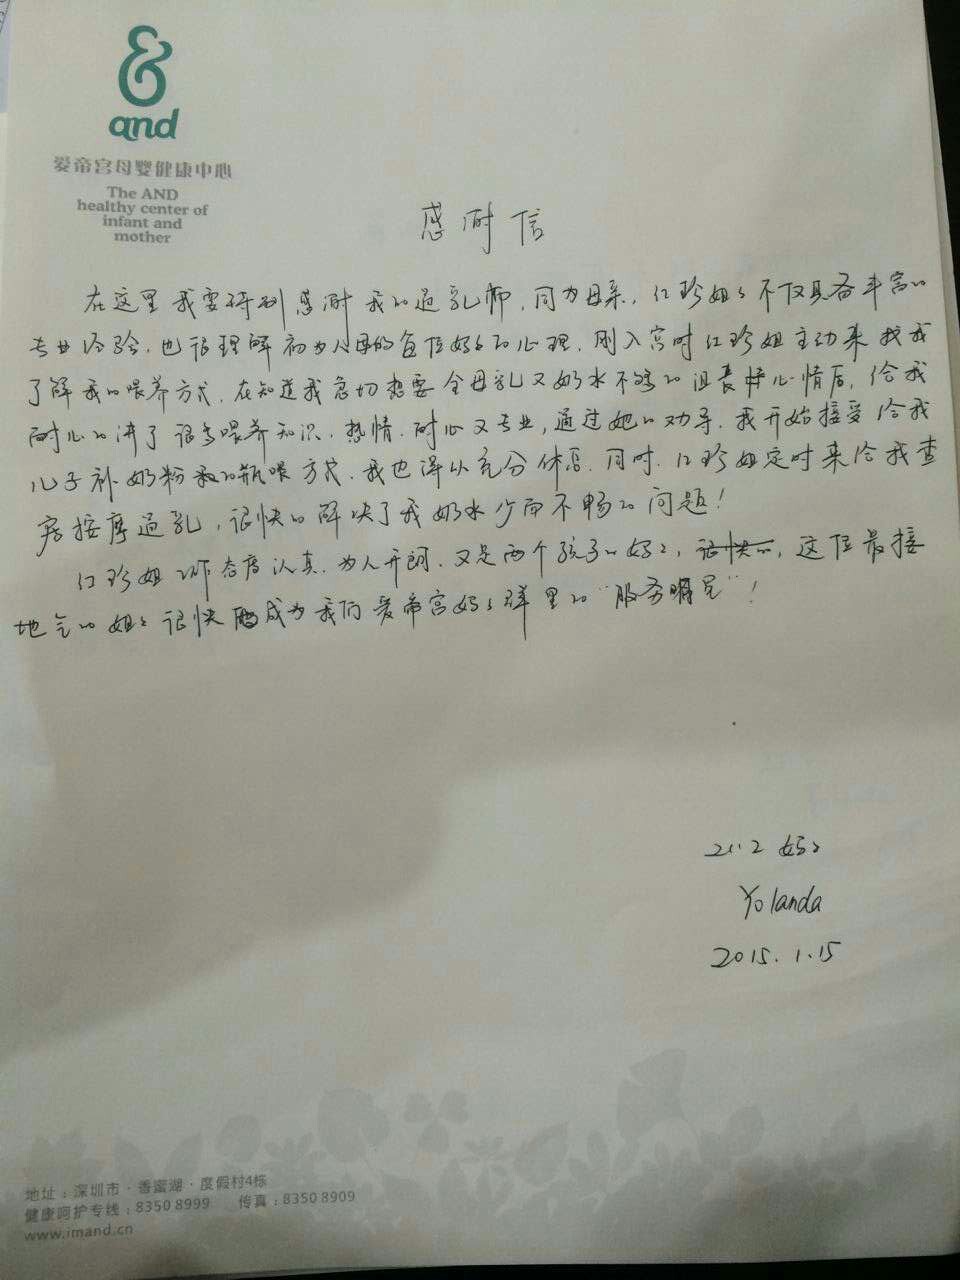 &
and
爱帝宫母婴健康中心
The AND
healthy center of
infant and
mother
感谢信
在这里我要特别感谢我的通乳师,同为母亲,红珍姐姐不仅具备丰富的
专业经验,也很理解初为人母的每位妈妈的心理,刚入宫时红珍姐主动来找我
了解我的喂养方式,在知道我急切想要全母乳又奶水不够的沮丧心情后,给我
耐心的讲了很多喂养知识,热情、耐心又专业,通过她的劝导,我开始接受给我
儿子补奶粉和瓶喂方式,我也得以充分休息,同时,红珍姐定时来给我查
房按摩通乳,很快的解决了我奶水少而不畅的问题!
红珍姐工作态度认真,为人开朗,又是两个孩子的妈妈,很快的,这位最接
地气的姐姐很快成为我们爱帝宫妈妈群里的“服务明星”!
妈妈
Yolanda
2015.1.15
地址:深圳市·香蜜湖·度假村4栋
健康呵护专线:8350 8999 传真:8350 8909
www.imand.cn